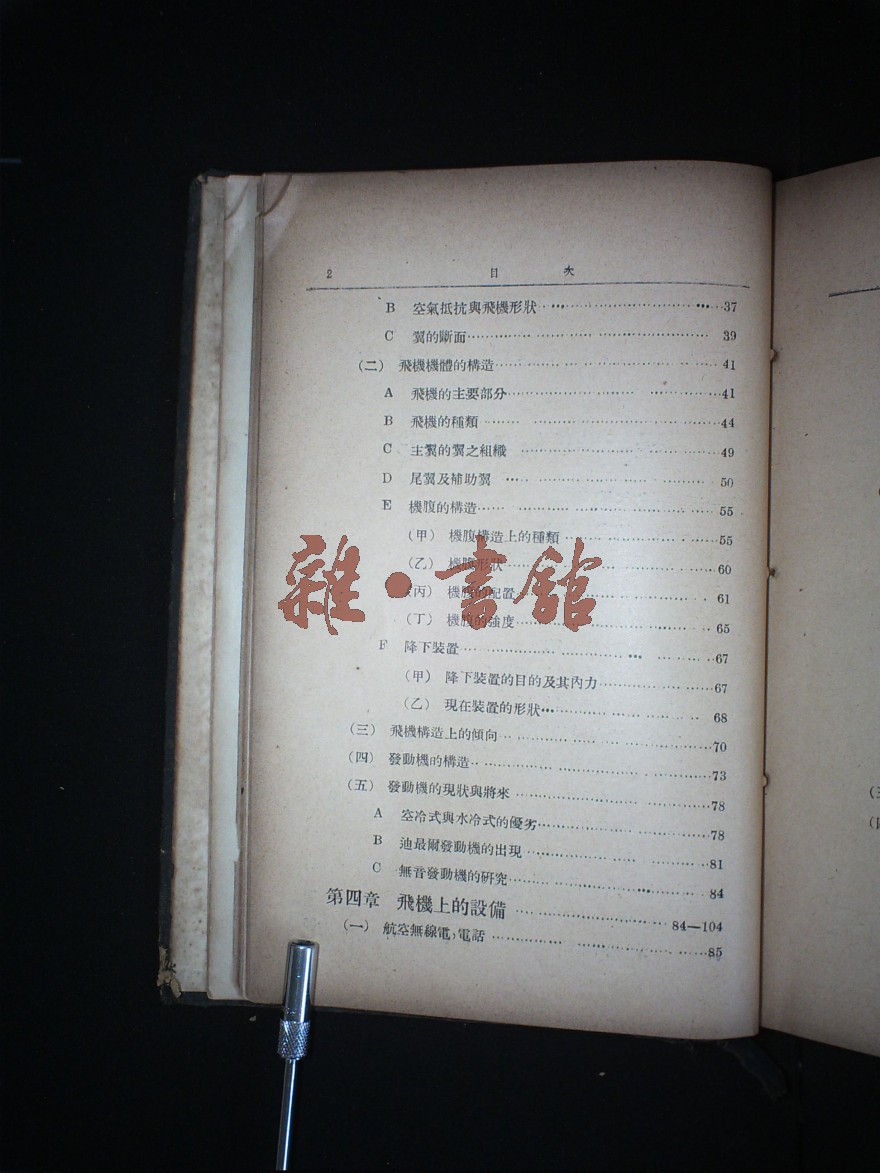 2 目 次
B 空氣抵抗與飛機形狀……37
C 翼的斷面……39
(二) 飛機機體的構造……41
A 飛機的主要部分……41
B 飛機的種類……44
C 主翼的翼之組織……49
D 尾翼及補助翼……50
E 機腹的構造……55
(甲) 機腹構造上的種類……55
(乙) 機腹形狀……60
(丙) 機腹的配置……61
(丁) 機腹的強度……65
F 降下裝置……67
(甲) 降下裝置的目的及其內力……67
(乙) 現在裝置的形狀……68
(三) 飛機構造上的傾向……70
(四) 發動機的構造……73
(五) 發動機的現狀與將來……78
A 空冷式與水冷式的優劣……78
B 迪最爾發動機的出現……81
C 無音發動機的研究……84
第四章 飛機上的設備……84—104
(一) 航空無線電,電話……85
雜·書館